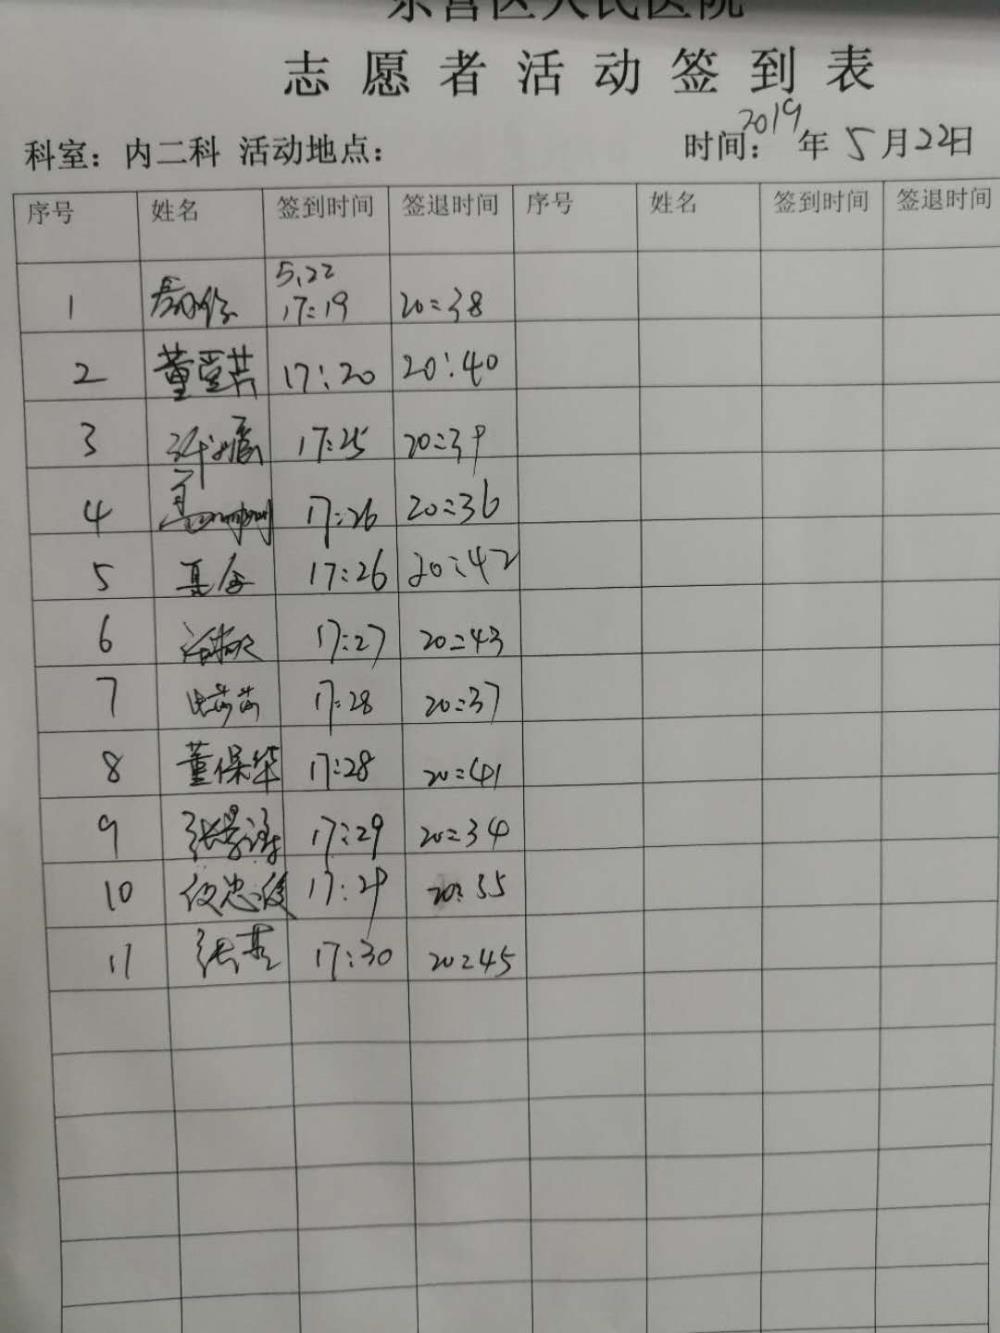 东营区人民医院
志愿者活动签到表
科室：内二科 活动地点： 时间：2019年5月22日
序号 姓名 签到时间 签退时间 序号 姓名 签到时间 签退时间
1 5.22 17:19 20:38
2 17:20 20:40
3 17:25 20:39
4 17:26 20:36
5 17:26 20:42
6 17:27 20:43
7 17:28 20:37
8 董保华 17:28 20:41
9 17:29 20:34
10 17:29 20:35
11 17:30 20:45